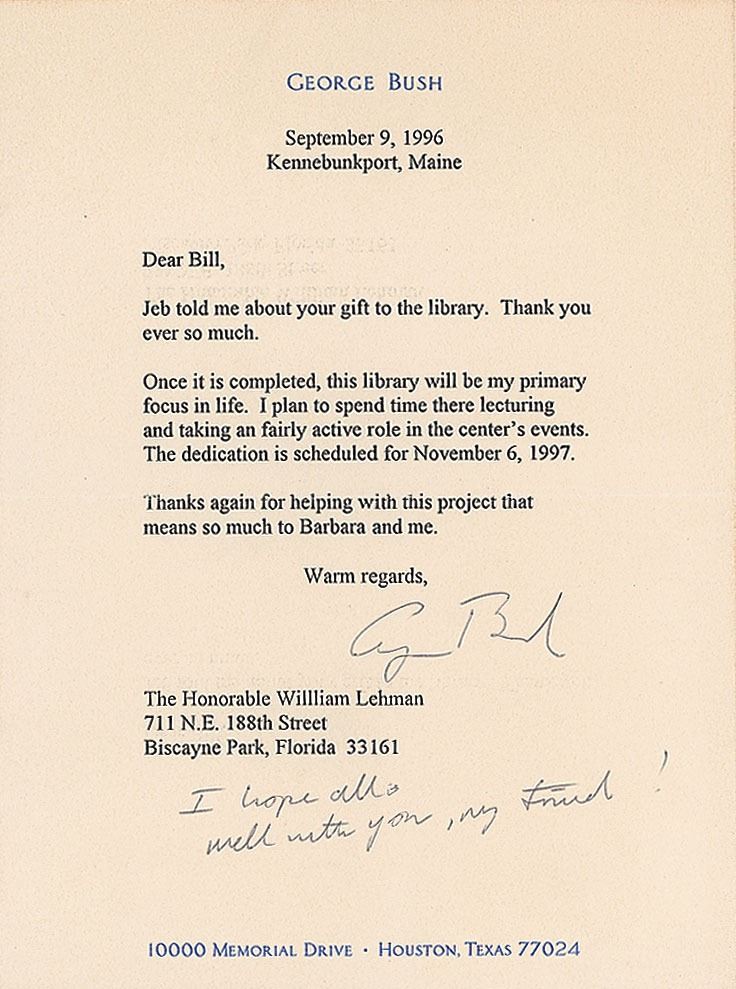 GEORGE BUSH
September 9, 1996
Kennebunkport, Maine
Dear Bill,
Jeb told me about your gift to the library. Thank you
ever so much.
Once it is completed, this library will be my primary
focus in life. I plan to spend time there lecturing
and taking an fairly active role in the center's events.
The dedication is scheduled for November 6, 1997.
Thanks again for helping with this project that
means so much to Barbara and me.
Warm regards,
G Bush
The Honorable Willliam Lehman
711 N.E. 188th Street
Biscayne Park, Florida 33161
I hope all's
well with you, my friend!
10000 MEMORIAL DRIVE · HOUSTON, TEXAS 77024